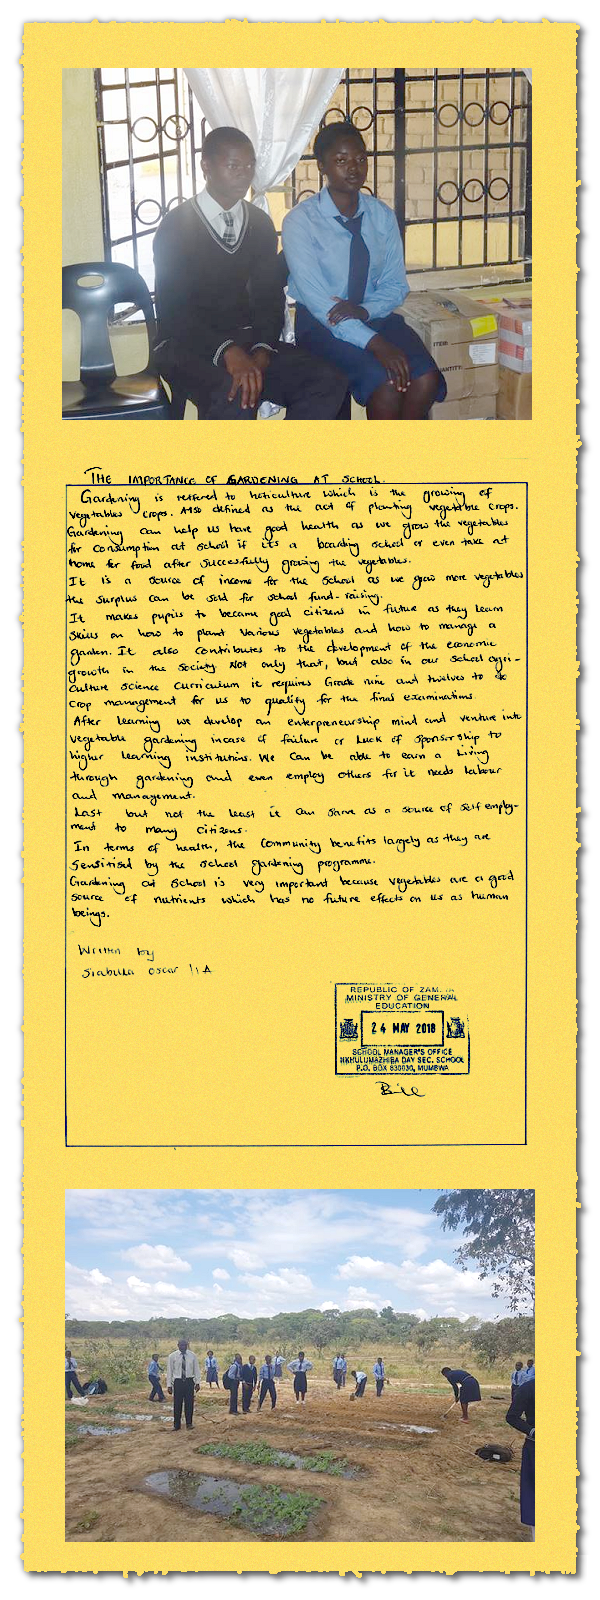 ITEM:
QUANTITY:
THE IMPORTANCE OF GARDENING AT SCHOOL.
Gardening is reffered to horticulture which is the growing of
vegetables crops. Also defined as the act of planting vegetable crops.
Gardening can help us have good health as we grow the vegetables
for consumption at school if its a boarding school or even take at
home for food after successfully growing the vegetables.
It is a source of income for the school as we grow more vegetables
the surplus can be sold for school fund-raising.
It makes pupils to became good citizens in future as they learn
skills on how to plant various vegetables and how to manage a
garden. It also contributes to the development of the economic
growth in the society. Not only that, but also in our school agri-
culture science curriculum it requires Grade nine and twelves to do
crop management for us to qualify for the final examinations.
After learning we develop an enterpreneurship mind and venture into
vegetable gardening incase of failure or luck of sponsorship to
higher learning institutions. We can be able to earn a living
through gardening and even employ others for it needs labour
and management.
Last but not the least it can serve as a source of self employ-
ment to many citizens.
In terms of health, the community benefits largely as they are
sensitised by the school gardening programme.
Gardening at school is very important because vegetables are a good
source of nutrients which has no future effects on us as human
beings.
Written by
Siabula Oscar 11A
REPUBLIC OF ZAMBIA
MINISTRY OF GENERAL
EDUCATION
24 MAY 2018
SCHOOL MANAGER'S OFFICE
NKHULUMAZHIBA DAY SEC. SCHOOL
P.O. BOX 830030, MUMBWA